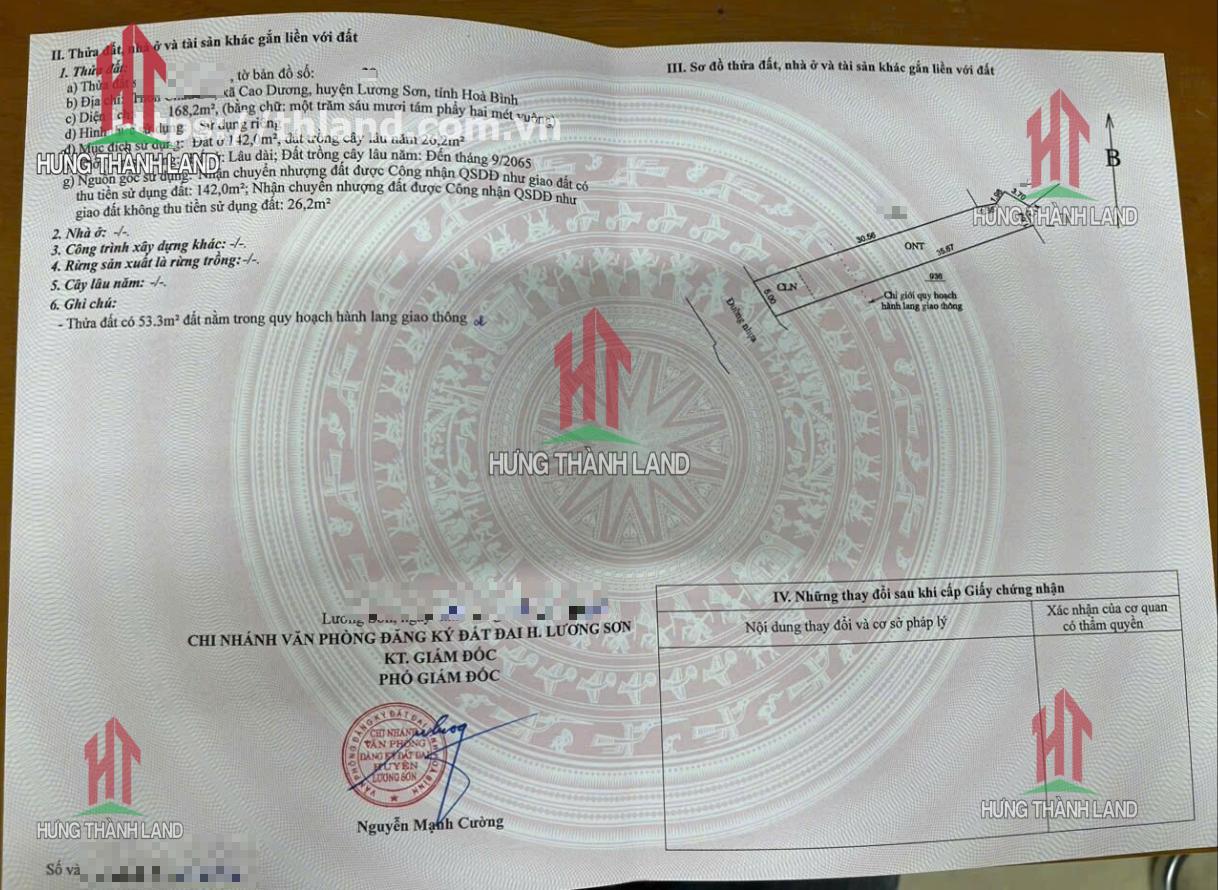 II. Thửa đất, nhà ở và tài sản khác gắn liền với đất
1. Thửa đất:
a) Thửa đất , tờ bản đồ số:
b) Địa chỉ: xã Cao Dương, huyện Lương Sơn, tỉnh Hoà Bình
c) Diện 168,2m², (bằng chữ: một trăm sáu mươi tám phẩy hai mét vuông)
d) Hình sử dụng riêng
đ) Mục đích sử dụng: Đất ở 142,0m², đất trồng cây lâu năm 26,2m²
Lâu dài; Đất trồng cây lâu năm: Đến tháng 9/2065
g) Nguồn gốc sử dụng: Nhận chuyển nhượng đất được Công nhận QSDĐ như giao đất có
thu tiền sử dụng đất: 142,0m²; Nhận chuyển nhượng đất được Công nhận QSDĐ như
giao đất không thu tiền sử dụng đất: 26,2m²
2. Nhà ở: -/-.
3. Công trình xây dựng khác: -/-.
4. Rừng sản xuất là rừng trồng: -/-.
5. Cây lâu năm: -/-.
6. Ghi chú:
- Thửa đất có 53.3m² đất nằm trong quy hoạch hành lang giao thông
Lương Sơn, ngày
CHI NHÁNH VĂN PHÒNG ĐĂNG KÝ ĐẤT ĐAI H. LƯƠNG SƠN
KT. GIÁM ĐỐC
PHÓ GIÁM ĐỐC
VĂN PHÒNG ĐĂNG KÝ ĐẤT ĐAI
HOÀ BÌNH
CHI NHÁNH
VĂN PHÒNG
ĐĂNG KÝ ĐẤT ĐAI
HUYỆN
LƯƠNG SƠN
Nguyễn Mạnh Cường
Số và
III. Sơ đồ thửa đất, nhà ở và tài sản khác gắn liền với đất
B
3.70
1.98
30.56
ONT
35.67
CLN
5.00
936
Đường nhựa
Chỉ giới quy hoạch
hành lang giao thông
IV. Những thay đổi sau khi cấp Giấy chứng nhận
Nội dung thay đổi và cơ sở pháp lý
Xác nhận của cơ quan
có thẩm quyền
HƯNG THÀNH LAND
HƯNG THÀNH LAND
HƯNG THÀNH LAND
HƯNG THÀNH LAND
HƯNG THÀNH LAND
https://hthland.com.vn